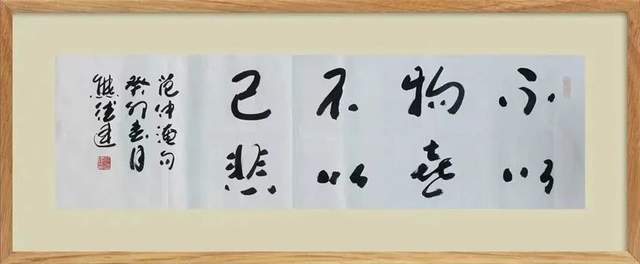 不以
物喜
不以
己悲
范仲淹句
癸卯春月
熊德建